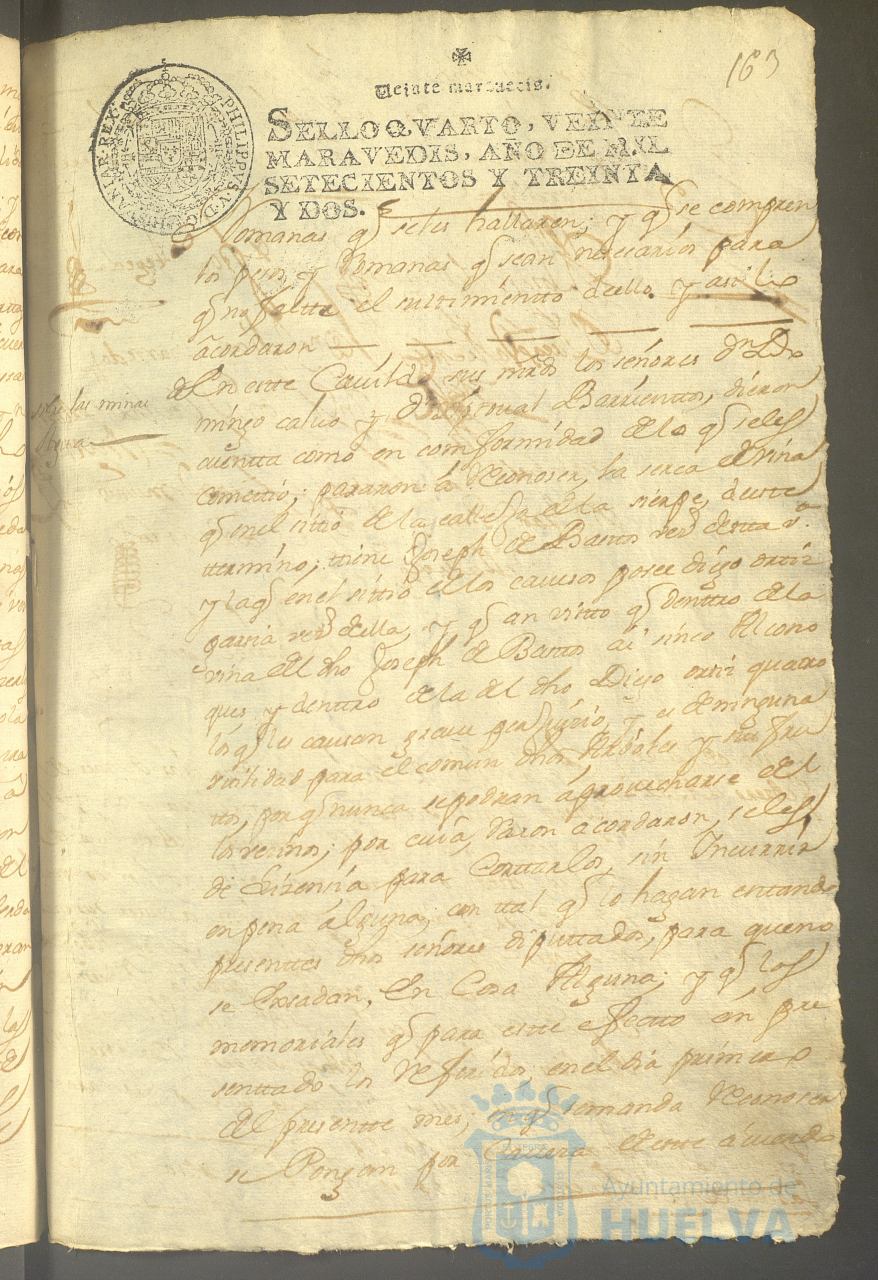 163
Veinte maravedis.
SELLO QVARTO, VEINTE
MARAVEDIS, AÑO DE MIL
SETECIENTOS Y TREINTA
Y DOS.
PHILIPPVS V D G HISPANIAR REX
Romanas q̃ seles hallaren; y q̃ se compren
los pesos y Romanas q̃ sean nesesarios para
q̃ no faltte el surttimientto dello y assi lo
acordaron
sobre las viñas
En estte Cavildo sus mrds los señores Dn Do
mingo calvo y Dn Barrienttos, dieron
cuentta como en comformidad de lo q̃ seles
comettio; pasaron a Reconoser, la serca de viña
q̃ en el sittio de la cavessa de la sierpe, de estte
ttermino; ttiene Joseph de Basttos vezº de estta vª
y la q̃ en el sittio de los posee diego ortiz
garsia vezº de ella, y q̃ an vistto q̃ denttro de la
viña del dho Joseph de Basttos ai sinco Alcorno
ques y denttro de la del dho Diego orttiz quattro
los q̃ les causan grave perjuizio, y es de ninguna
vttilidad para el comun dhos Arboles y su fru
tto, por q̃ nunca se podran aprovecharse del
los vezinos; por cuia Razon acordaron, seles
de lizensia para Corttarlos, sin Yncurrir
en pena alguna, con ttal q̃ lo hagan esttando
presenttes dhos señores diputtados, para que no
se Exsedan, En Cosa Alguna; y q̃ los
memoriales q̃ para estte efectto an pre
senttado los Referidos en el dia primero
del presentte mes; en q̃ se manda Reconoser
se Pongan por Cavesa de estte acuerdo
Ayuntamiento de
HUELVA